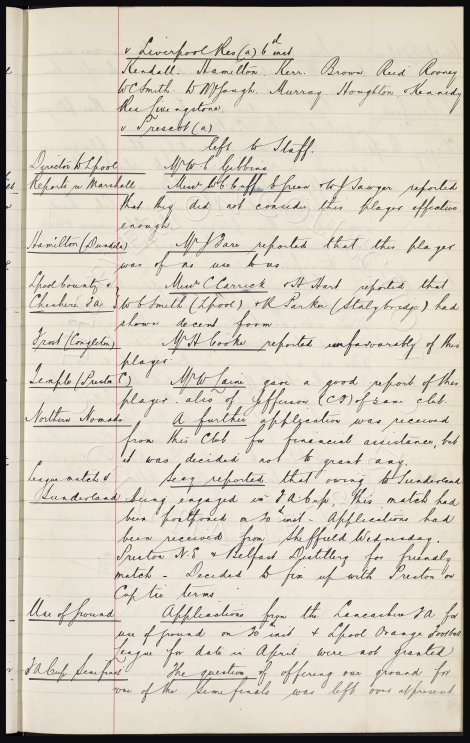 v Liverpool Res (a) 6th inst
Kendall. Hamilton. Kerr. Brown Reid Rooney
W C Smith. W McGough. Murray Houghton & Kennedy
Res Livingstone.
v Prescot (a)
left to Staff.
Director to L'pool Mr W C Gibbins
Reports re Marshall Messrs W C Cuff, B Green & W J Sawyer reported
that they did not consider this player effective
enough.
Hamilton (Dundela) Mr J Bare reported that this player
was of no use to us.
L'pool County v Messrs C Carrick & H Hart reported that
Cheshire F.A. W C Smith (L'pool) & R Parker (Stalybridge) had
shown decent form.
Frost (Congleton) Mr H Cooke reported unfavorably of this
player.
Temple (Preston C) Mr W Faire gave a good report of this
player also of Jefferson (CF) of same club.
Northern Nomads A further application was received
from this Club for financial assistance, but
it was decided not to grant any.
League match v Secy reported that owing to Sunderland
Sunderland being engaged in F A Cup, this match had
been postponed on 20th inst - Applications had
been received from Sheffield Wednesday.
Preston N.E & Belfast Distillery for friendly
match - Decided to fix up with Preston on
Cup tie terms
Use of Ground Applications from the Lancashire F A for
use of ground on 20th inst & L'pool Orange Football
League for date in April were not granted
F A Cup Semi final The question of offering our ground for
one of the semi finals was left over at present